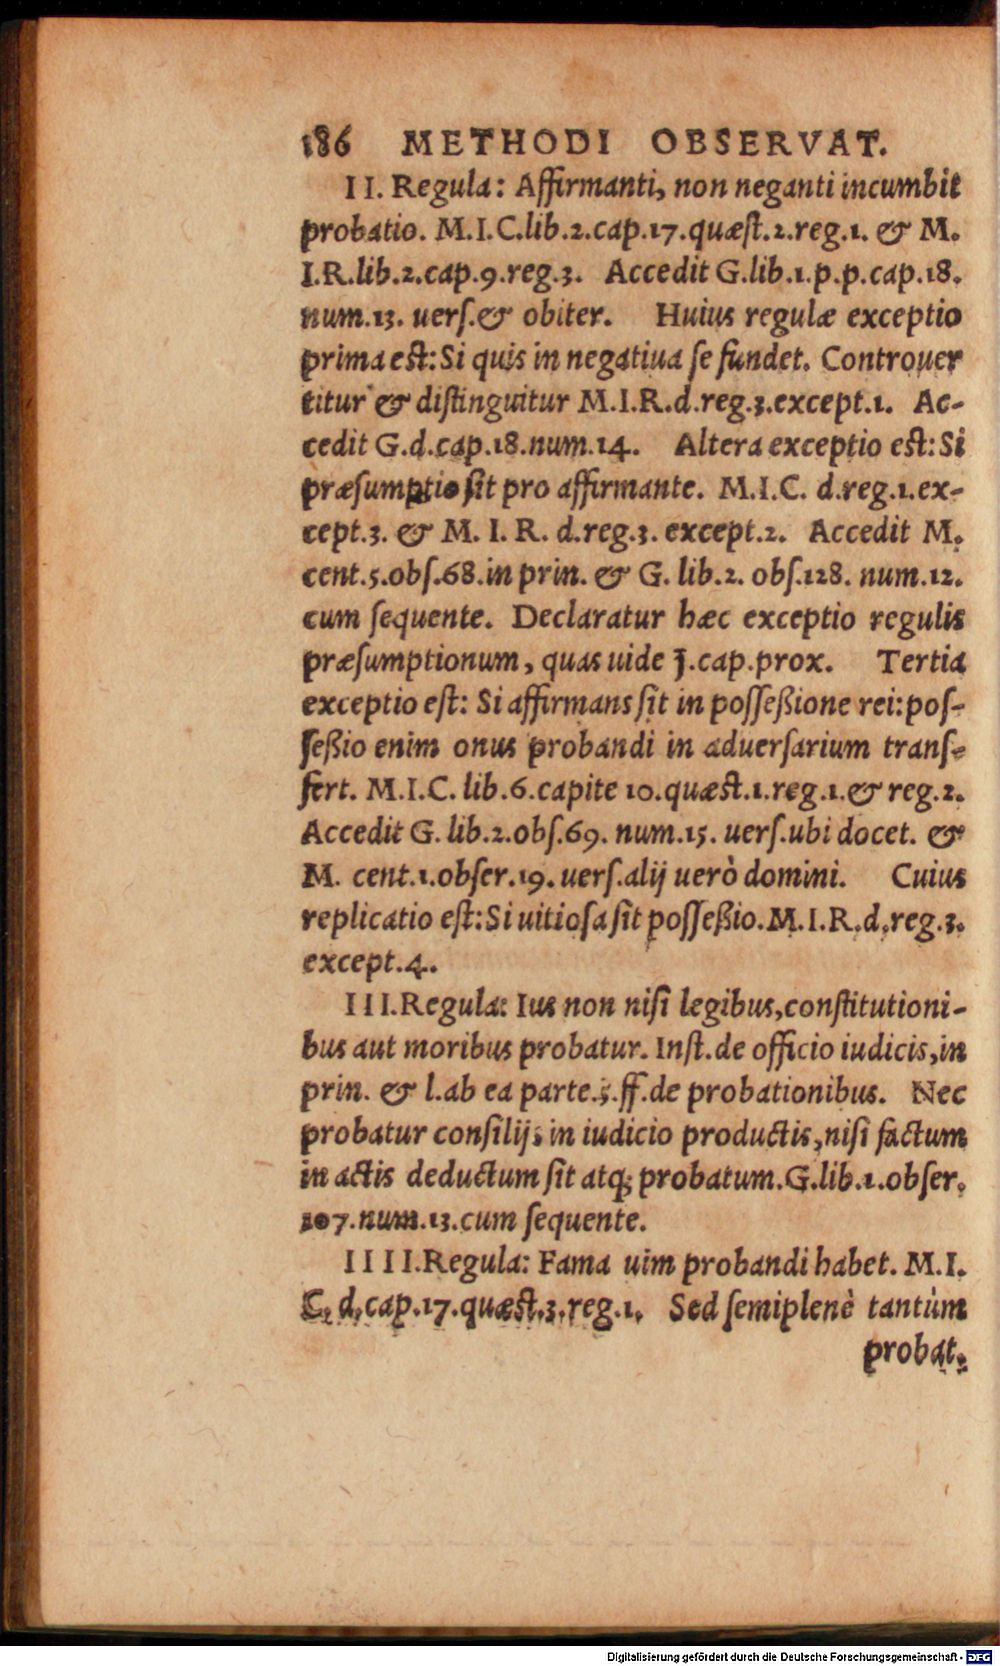 186 METHODI OBSERVAT.
II. Regula: Affirmanti, non neganti incumbit
probatio. M.I.C.lib.2.cap.17.quæst.2.reg.1. & M.
I.R.lib.2.cap.9.reg.3. Accedit G.lib.1.p.p.cap.18.
num.13. uerſ.& obiter. Huius regulæ exceptio
prima eſt: Si quis in negatiua ſe fundet. Controuer
titur & diſtinguitur M.I.R.d.reg.3.except.1. Ac-
cedit G.d.cap.18.num.14. Altera exceptio eſt: Si
præſumptio ſit pro affirmante. M.I.C. d.reg.1.ex-
cept.3. & M. I. R. d.reg.3. except.2. Accedit M.
cent.5.obſ.68.in prin. & G. lib.2. obſ.128. num.12.
cum ſequente. Declaratur hæc exceptio regulis
præſumptionum, quas uide J.cap.prox. Tertia
exceptio eſt: Si affirmans ſit in poſſeßione rei: poſ-
ſeßio enim onus probandi in aduerſarium tranſ-
fert. M.I.C. lib.6.capite 10.quæst.1.reg.1.& reg.2.
Accedit G. lib.2.obſ.69. num.15. uerſ.ubi docet. &
M. cent.1.obſer.19. uerſ.alij uerò domini. Cuius
replicatio eſt: Si uitioſa ſit poſſeßio. M.I.R.d.reg.3.
except.4.
III. Regula: Ius non niſi legibus, conſtitutioni-
bus aut moribus probatur. Inſt. de officio iudicis, in
prin. & l.ab ea parte.5.ff.de probationibus. Nec
probatur conſilijs in iudicio productis, niſi factum
in actis deductum ſit atq; probatum. G.lib.1.obſer.
107.num.13.cum ſequente.
IIII. Regula: Fama uim probandi habet. M.I.
C. d.cap.17.quæst.3.reg.1. Sed ſemiplenè tantùm
probat.
Digitalisierung gefördert durch die Deutsche Forschungsgemeinschaft - DFG